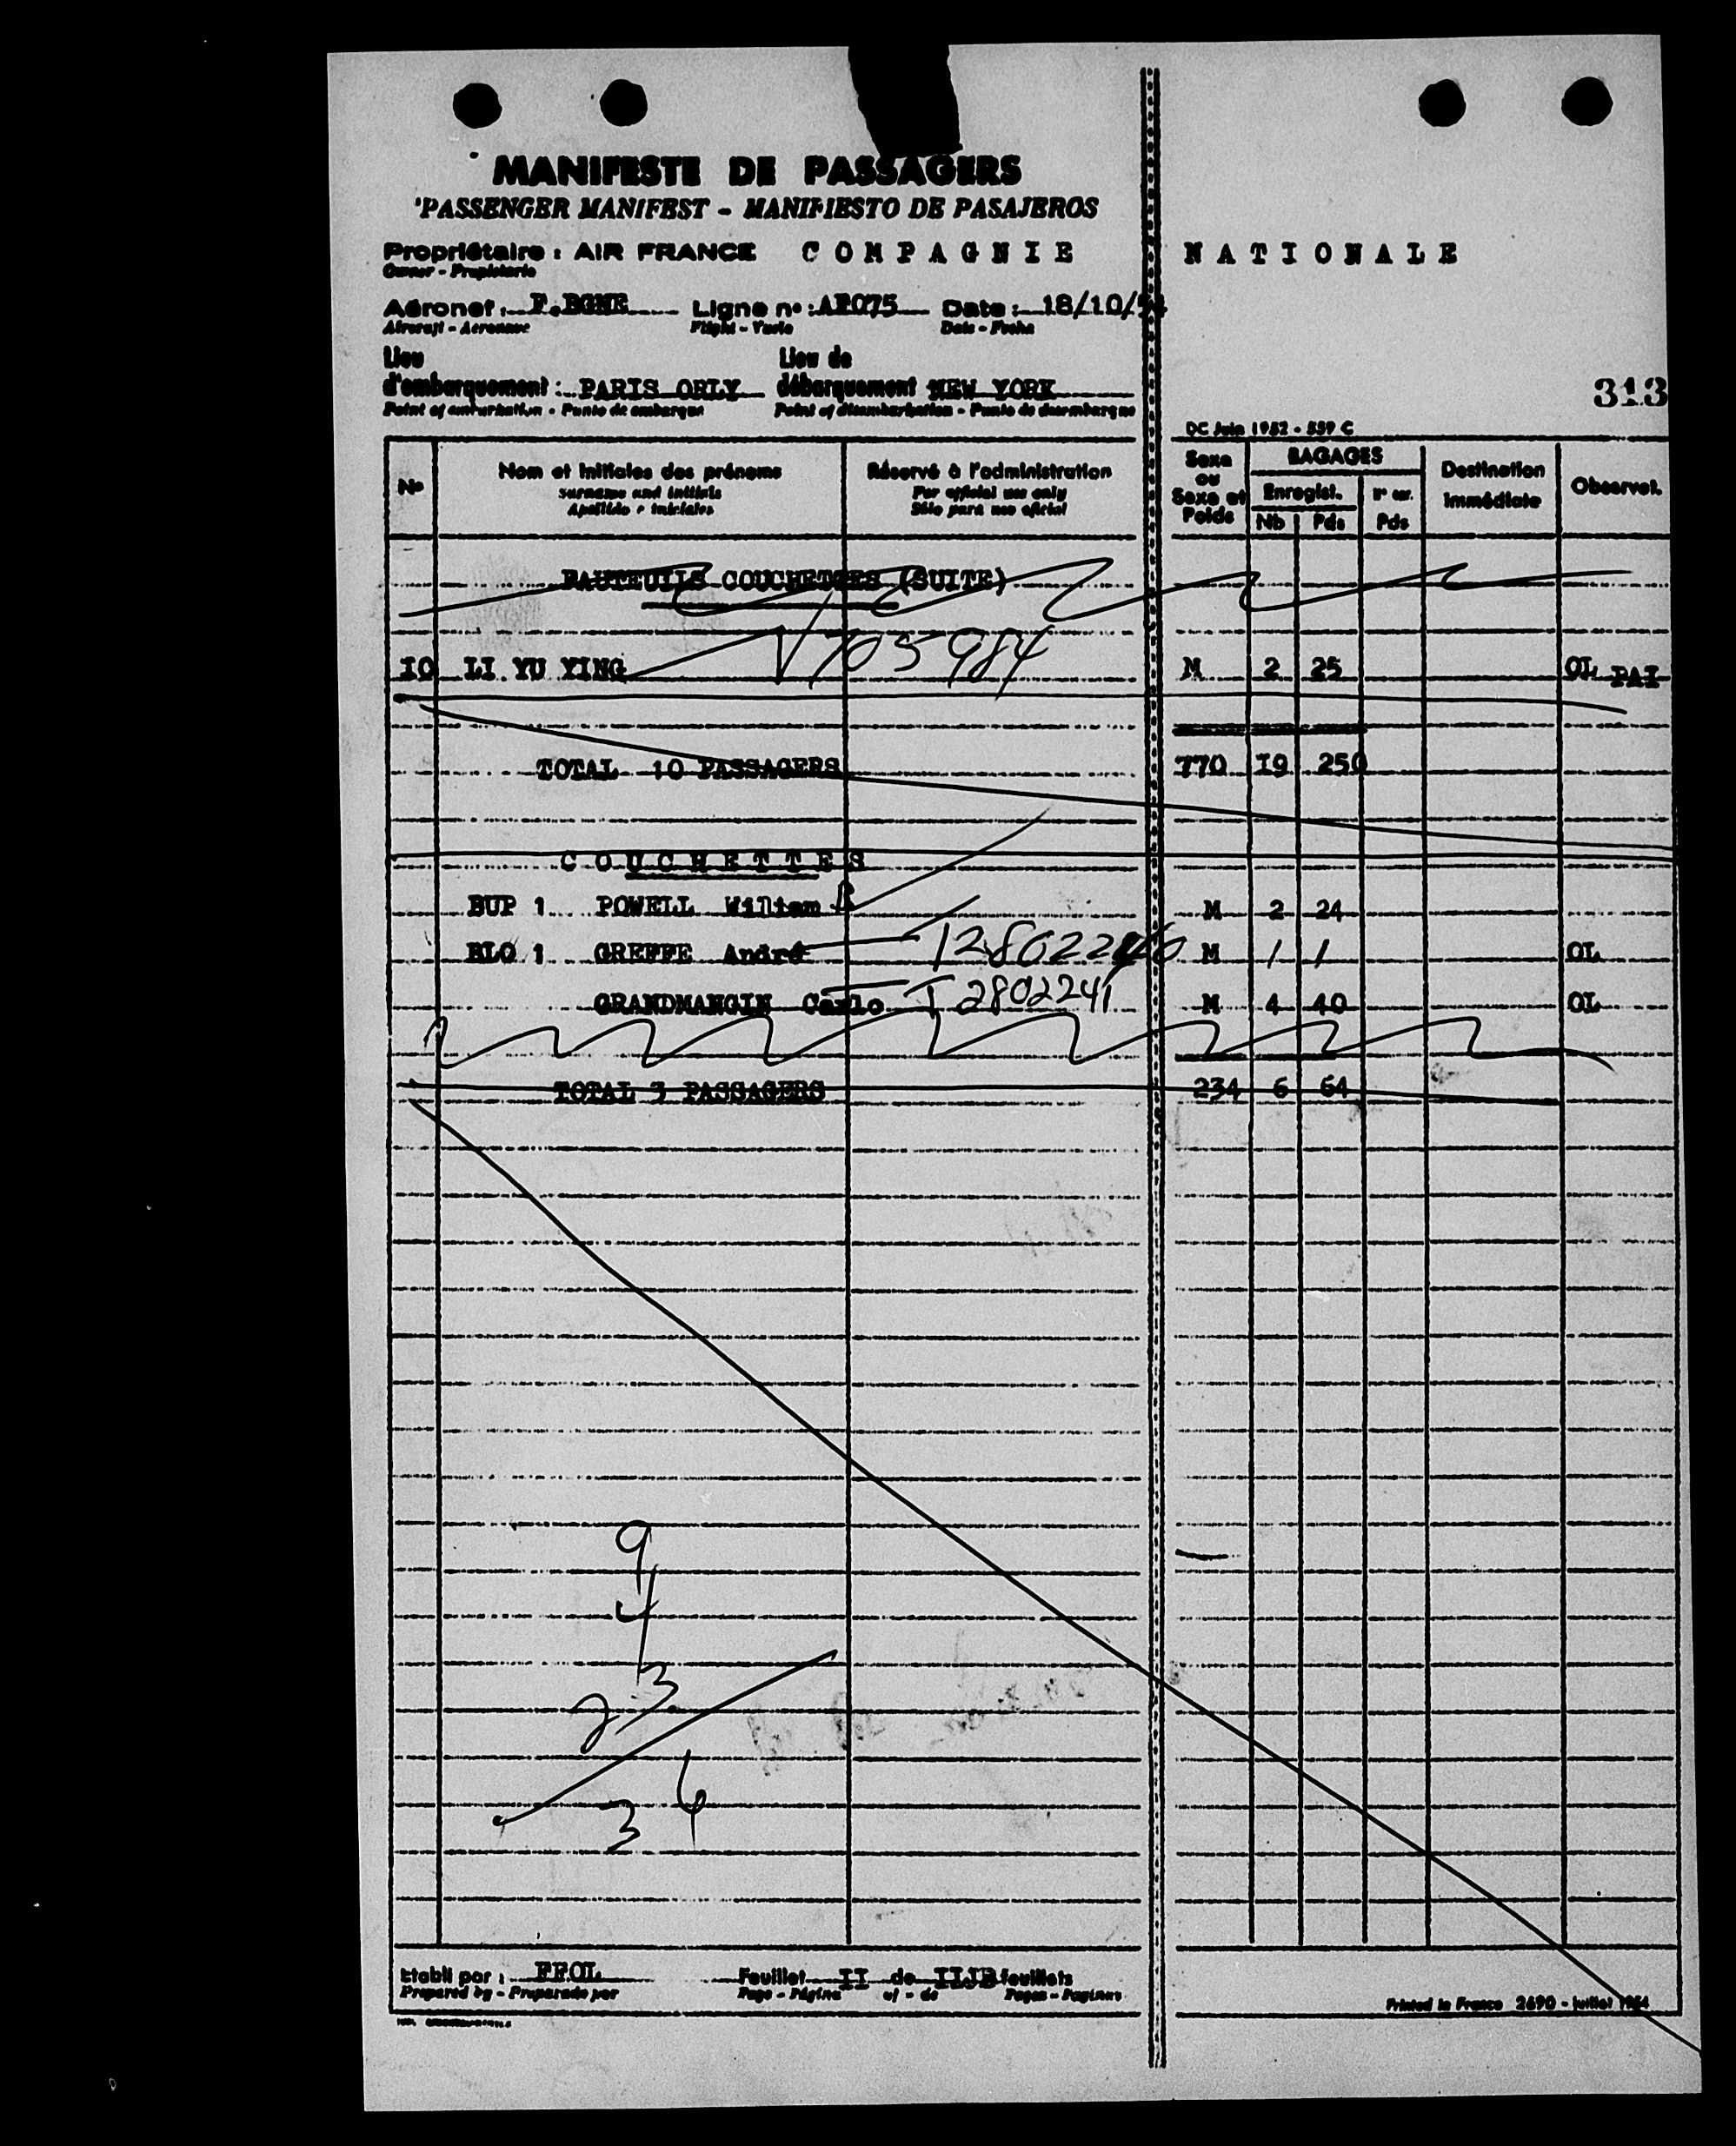 MANIFESTE DE PASSAGERS
PASSENGER MANIFEST - MANIFIESTO DE PASAJEROS
Propriétaire : AIR FRANCE COMPAGNIE NATIONALE
Owner - Propietario
Aéronef : F.BGNE Ligne nº : AF075 Date : 18/10/54
Aircraft - Aeronave Flight - Vuelo Date - Fecha
Lieu Lieu de
d'embarquement : PARIS ORLY débarquement NEW YORK
Point of embarkation - Punto de embarque Point of disembarkation - Punto de desembarque
313
DC Juin 1952 - 559 C
Nº Nom et initiales des prénoms Réservé à l'administration Sexe ou Sexe et Poids BAGAGES Destination immédiate Observat.
surname and initials For official use only Enregist.
Apellido e iniciales Sólo para uso oficial Nb Pds Pds
FAUTEUILS COUCHETTES (SUITE)
IO LI YU YING V 705984 M 2 25 OL PAI
TOTAL 10 PASSAGERS 770 I9 250
COUCHETTES
BUP 1 POWELL William M 2 24
BLO 1 GREFFE André M / / OL
GRANDMANGIN Carlo T 2802241 M 4 40 OL
TOTAL 3 PASSAGERS 234 6 64
9
4
23
3 6
Etabli par : FFOL Feuillet II de feuillets
Prepared by - Preparado por Page - Página of - de Pages - Paginas
Printed in France 2690 - Juillet 1954